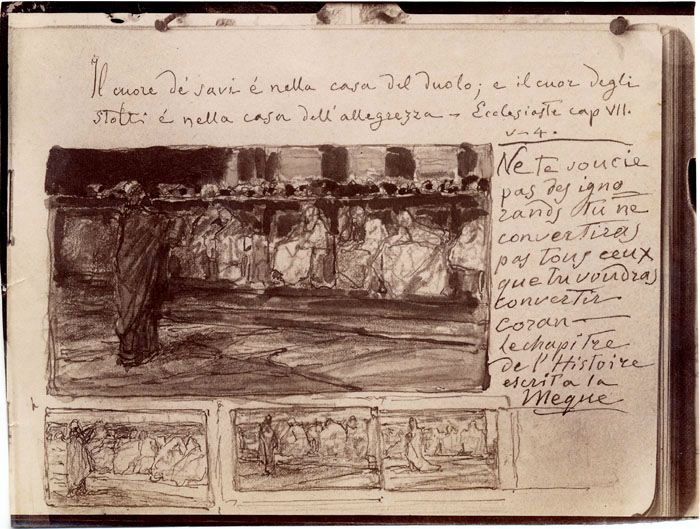 Il cuore de' savi é nella casa del duolo; e il cuor degli
stolti é nella casa dell'allegrezza – Ecclesiaste cap VII.
v – 4.
Ne te soucie
pas des igno
rands tu ne
convertiras
pas tous ceux
que tu voudras
convertir
coran —
le chapitre
de l'Histoire
escrit a la
Meque